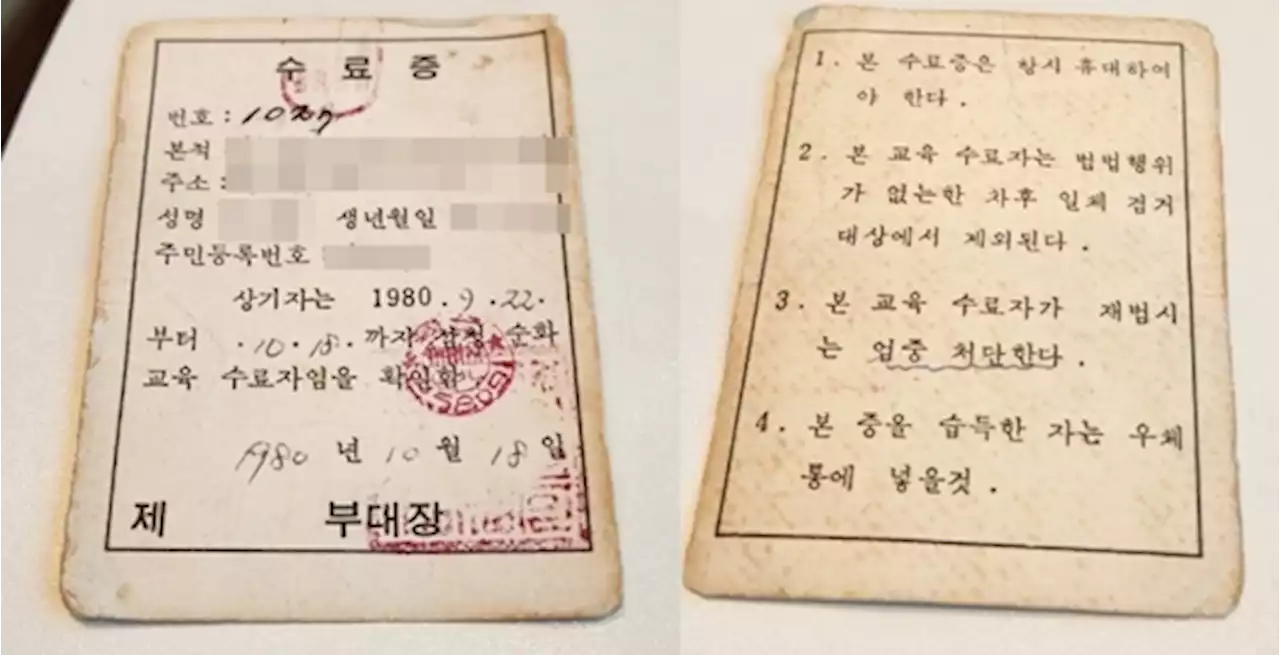 수 료 증
번호 :
본적
주소 :
성명 생년월일
주민등록번호
상기자는 1980 . 9 . 22 .
부터 . 10 . 18 . 까지 삼청 순화
교육 수료자임을 확인함
1980 년 10 월 18 일
제 부대장
1. 본 수료증은 항시 휴대하여
야 한다 .
2. 본 교육 수료자는 범법행위
가 없는한 차후 일체 검거
대상에서 제외된다 .
3. 본 교육 수료자가 재범시
는 엄중 처단한다 .
4. 본 증을 습득한 자는 우체
통에 넣을것 .